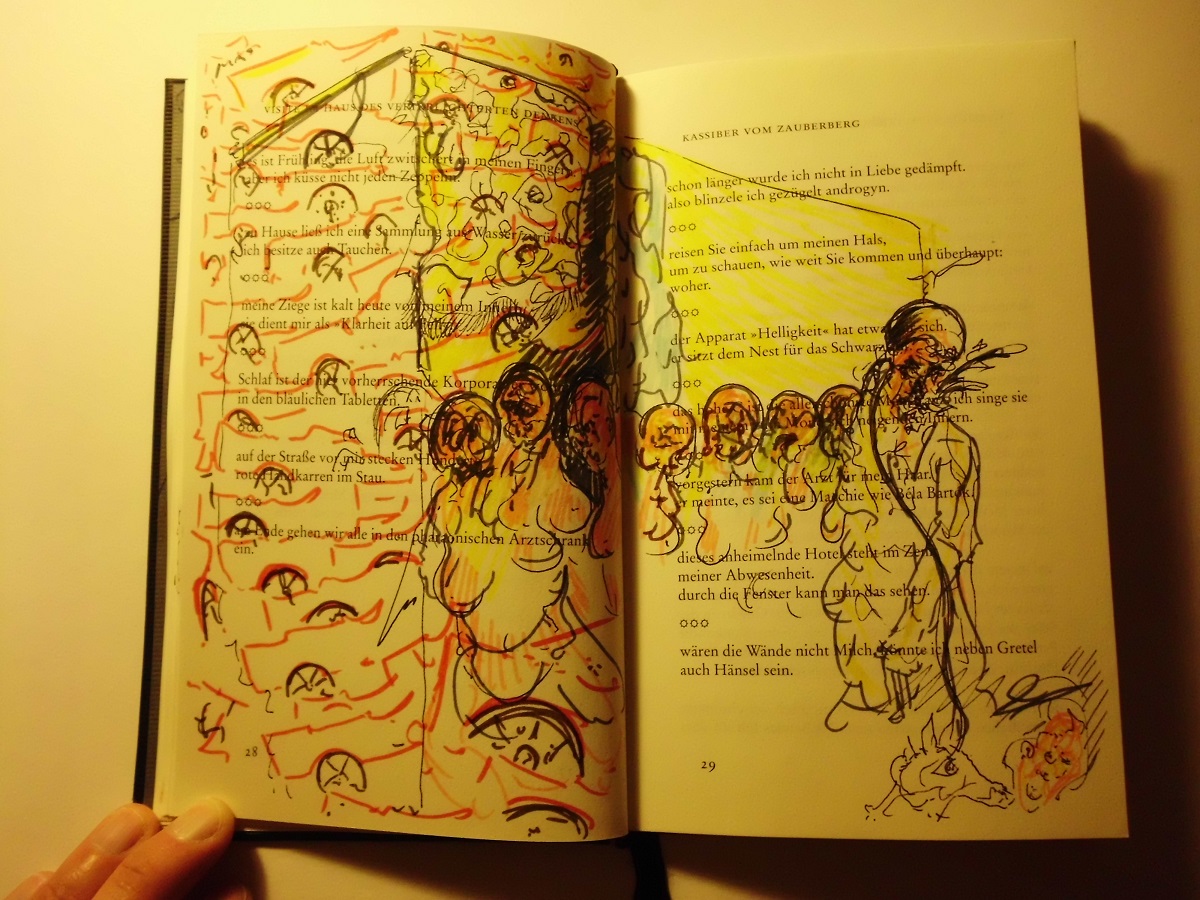 VISITE IM HAUS DES VERDENS
es ist Frühling, die Luft zwitschert in meinen Fingern
aber ich küsse nicht jeden Zeppelin.
zu Hause ließ ich eine Sammlung aus Wasser zurück
ich besitze auch Tauchen.
meine Ziege ist kalt heute von meinem
dient mir als »Klarheit auf
Schlaf ist der hier vorherrschende
in den blaulichen Tabletten.
auf der Straße vor mir stecken
rote Handkarren im Stau.
am Ende gehen wir alle in den pharaonischen Arztschrank
ein.
28
KASSIBER VOM ZAUBERBERG
schon länger wurde ich nicht in Liebe gedämpft.
also blinzele ich gezügelt androgyn.
reisen Sie einfach um meinen Hals,
um zu schauen, wie weit Sie kommen und überhaupt:
woher.
der Apparat »Helligkeit« hat etwas sich.
er sitzt dem Nest für das
das ich singe sie
mit
vorgestern kam der Arzt für mein Haar.
er meinte, es sei eine Matchie wie Béla Bartók.
dieses anheimelnde Hotel steht im Zentrum
meiner Abwesenheit.
durch die Fenster kann man das sehen.
wären die Wände nicht Milch, könnte ich neben Gretel
auch Hänsel sein.
29